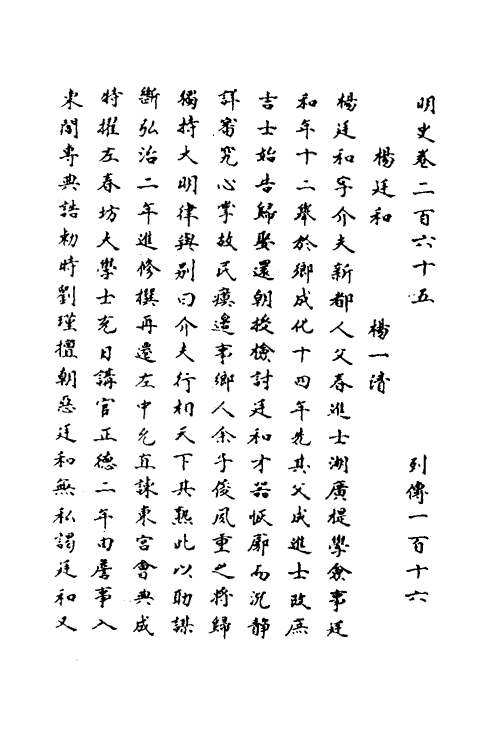 明史卷二百六十五　列傳一百十六
楊廷和　楊一清
楊廷和字介夫新都人父春進士湖廣提學僉事廷
和年十二舉於鄉成化十四年先其父成進士改庶
吉士始告歸娶還朝授檢討廷和才器恢廓而沉靜
詳審究心掌故民瘼邊事鄉人余子俊風重之將歸
獨持大明律與别曰介夫行相天下其熟此以助謀
斷弘治二年進修撰再遷左中允直諫東宮會典成
特擢左春坊大學士充日講官正德二年由詹事入
東閣專典誥勅時劉瑾擅朝惡廷和無私謁廷和又